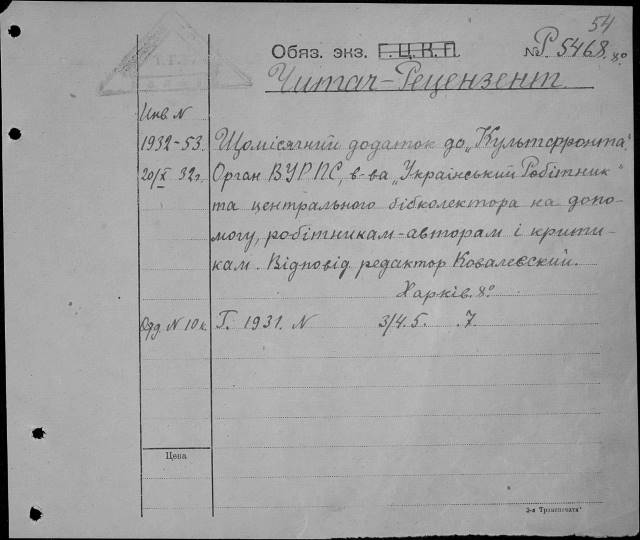 54
Обяз. экз. Г.Ц.К.П. № Р 5468. 8°
Читач-Рецензент
Инв N
1932-53. Щомісячний додаток до „Культфронта."
20/X 32г. Орган ВУРПС, в-ва „Український Робітник"
та центрального бібколектора на допо-
могу, робітникам-авторам і крити-
кам. Відповід редактор Ковалевский.
Харків. 8°
Отд N 10 к. Г. 1931. N 3/4.5. .7.
Цена
3-я Транспечать